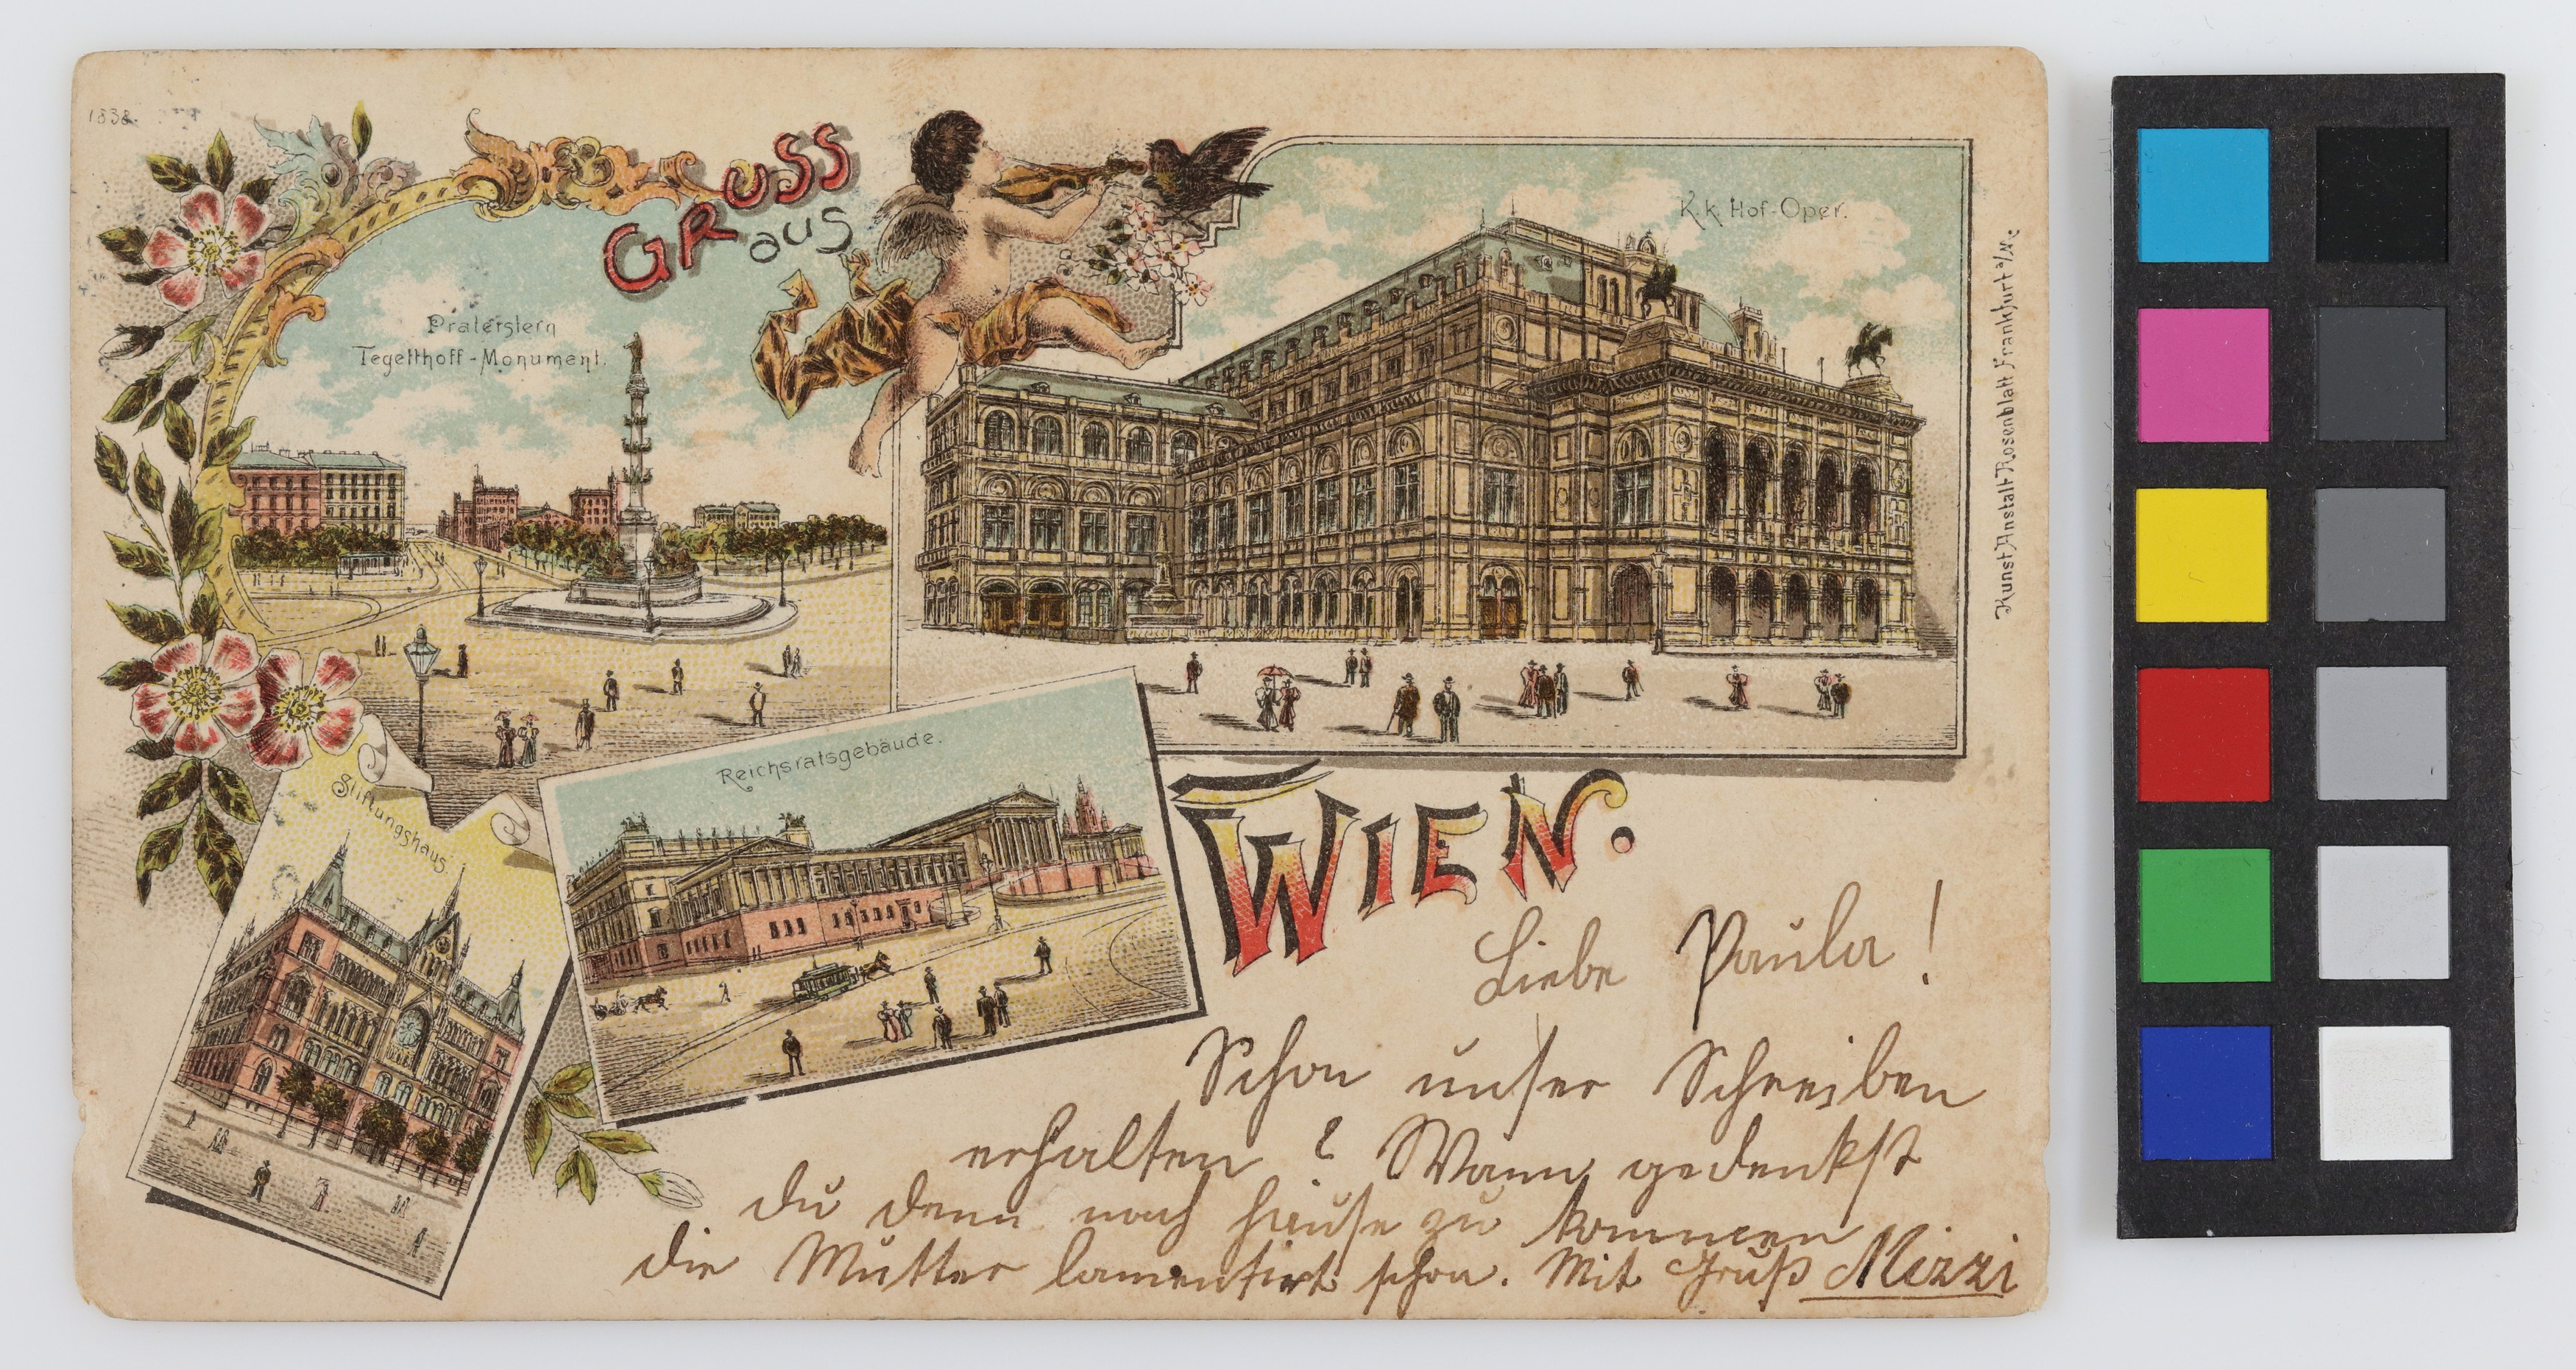 1838
GRUSS
aus
Praterstern
Tegetthoff-Monument.
K.k. Hof-Oper.
Kunst Anstalt Rosenblatt Frankfurt a/M.
Stiftungshaus
Reichsratsgebäude.
WIEN.
Liebe Paula!
Schon unser Schreiben
erhalten? Wann gedenkst
du denn nach hause zu kommen
die Mutter lamentirt schon. Mit Gruß Mizzi